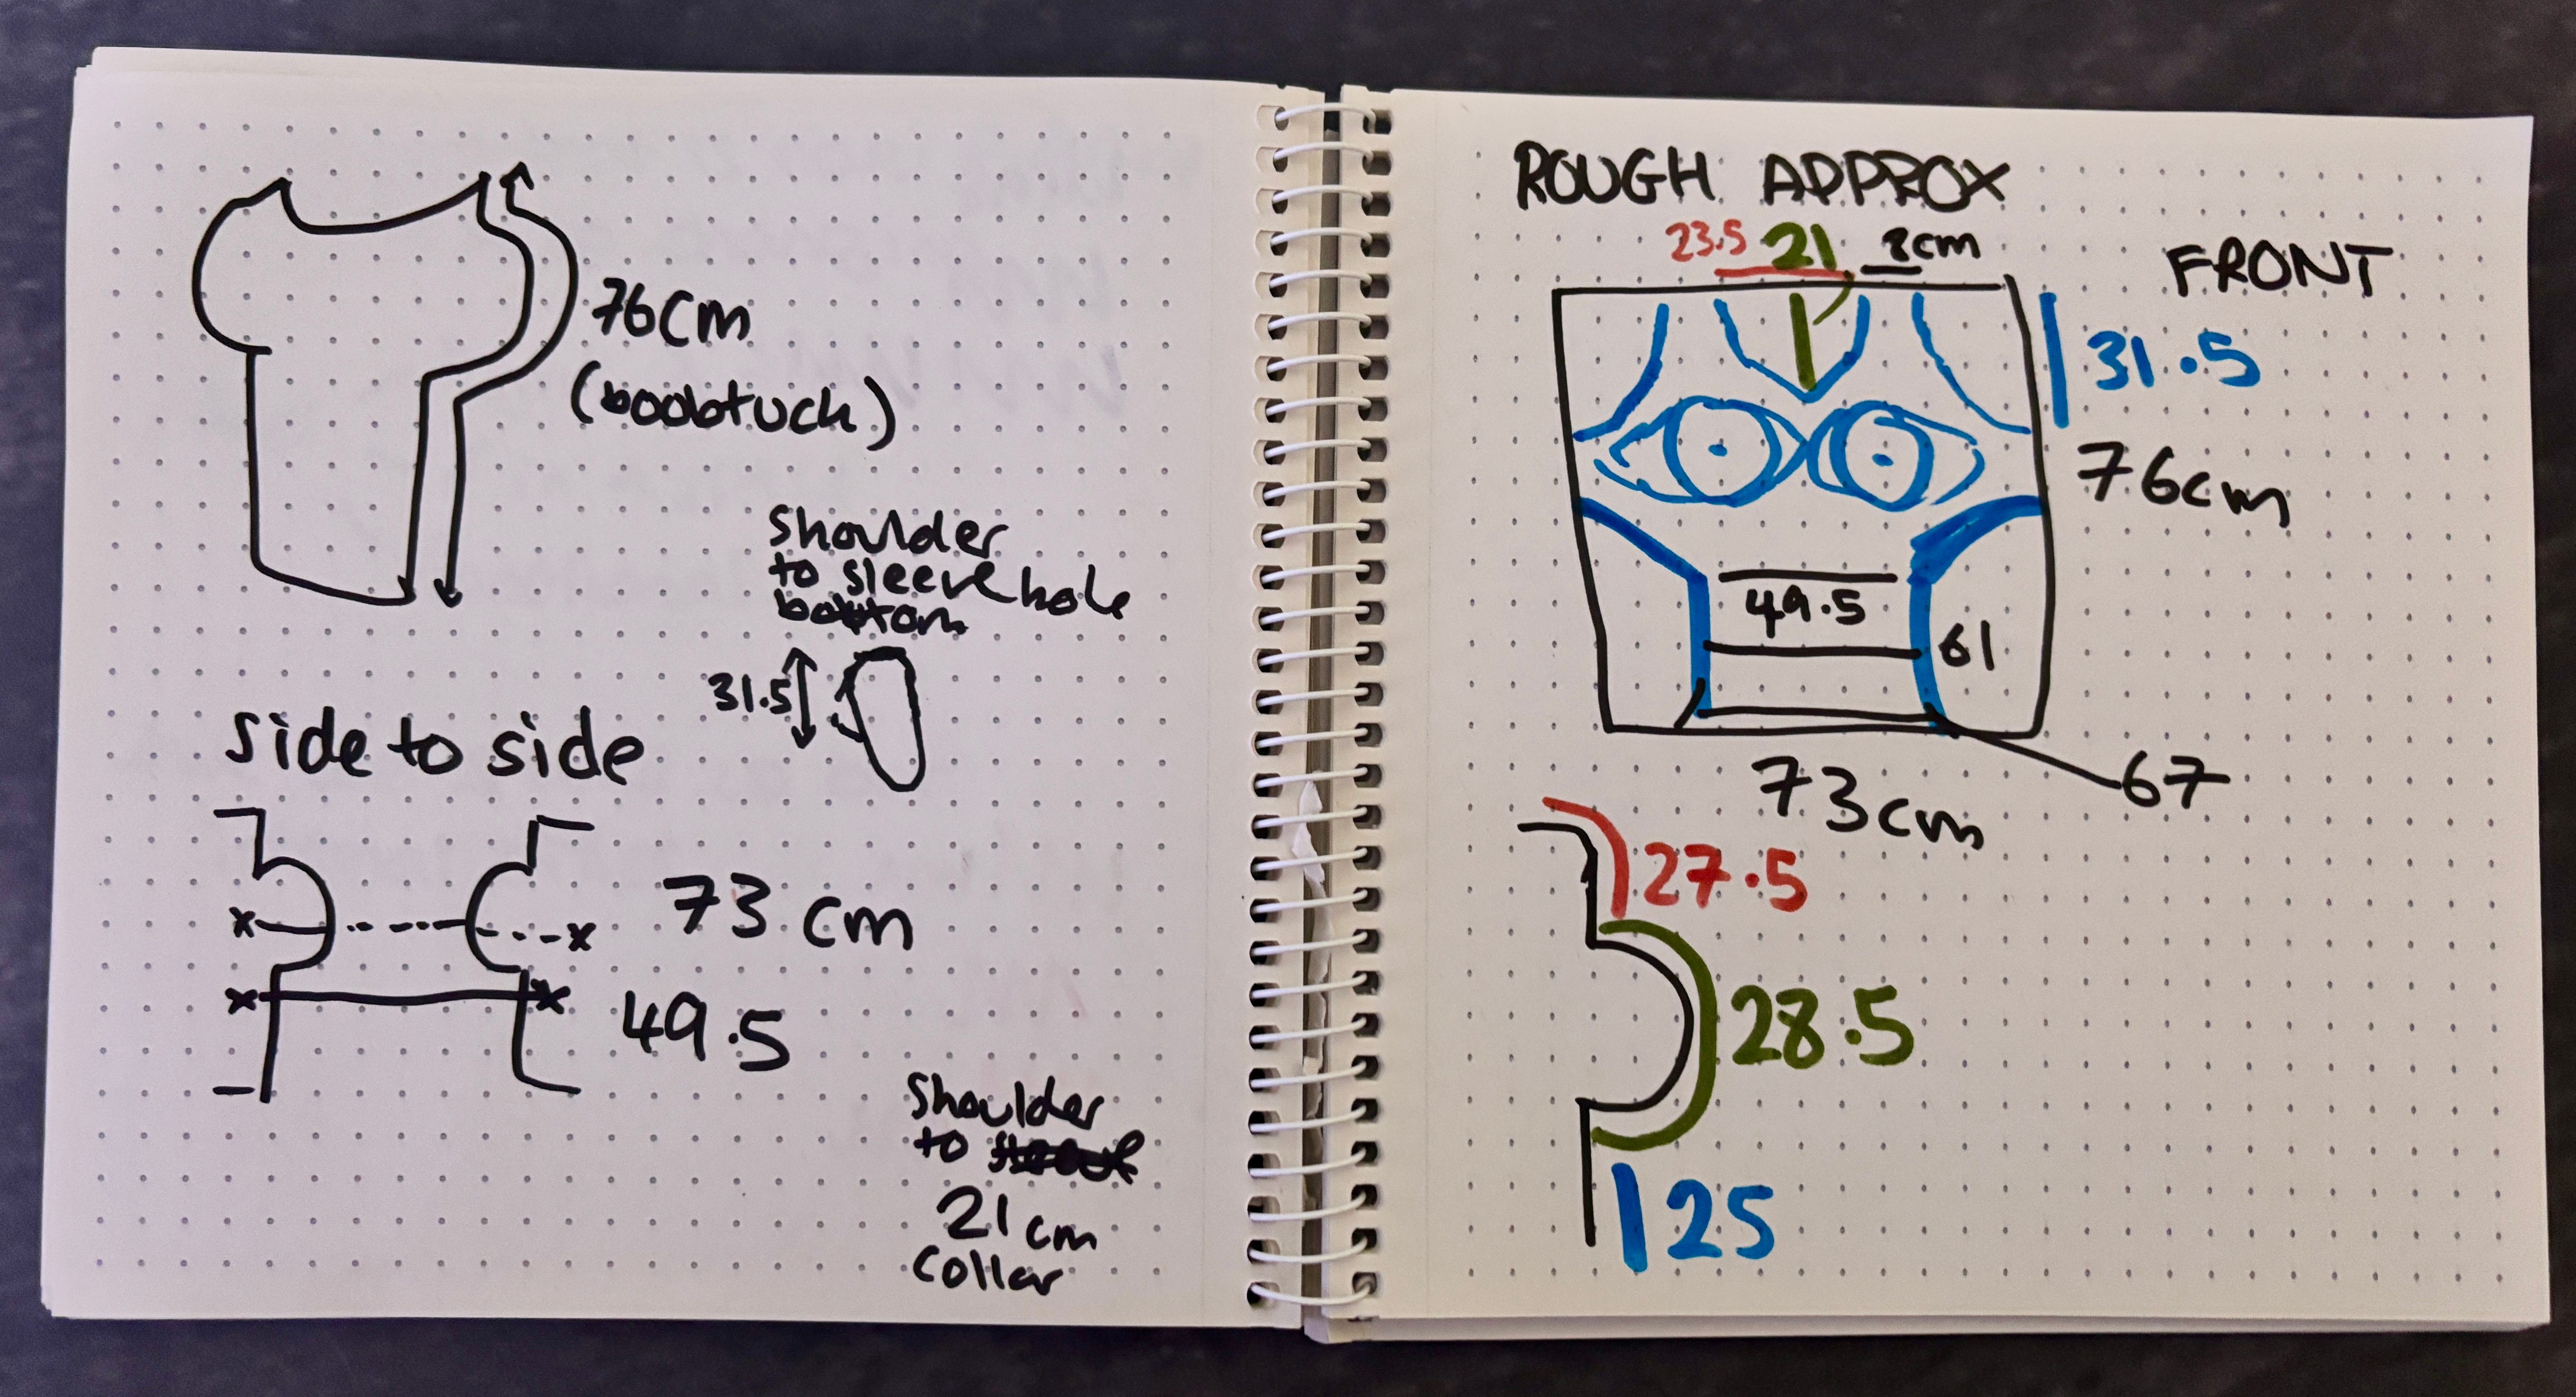 76cm
(boobtuck)
Shoulder
to sleeve hole
bottom
31.5
side to side
73 cm
49.5
Shoulder
to
21 cm
Collar
ROUGH APPROX
23.5 21 8cm
FRONT
31.5
76cm
49.5
61
67
73cm
27.5
28.5
25